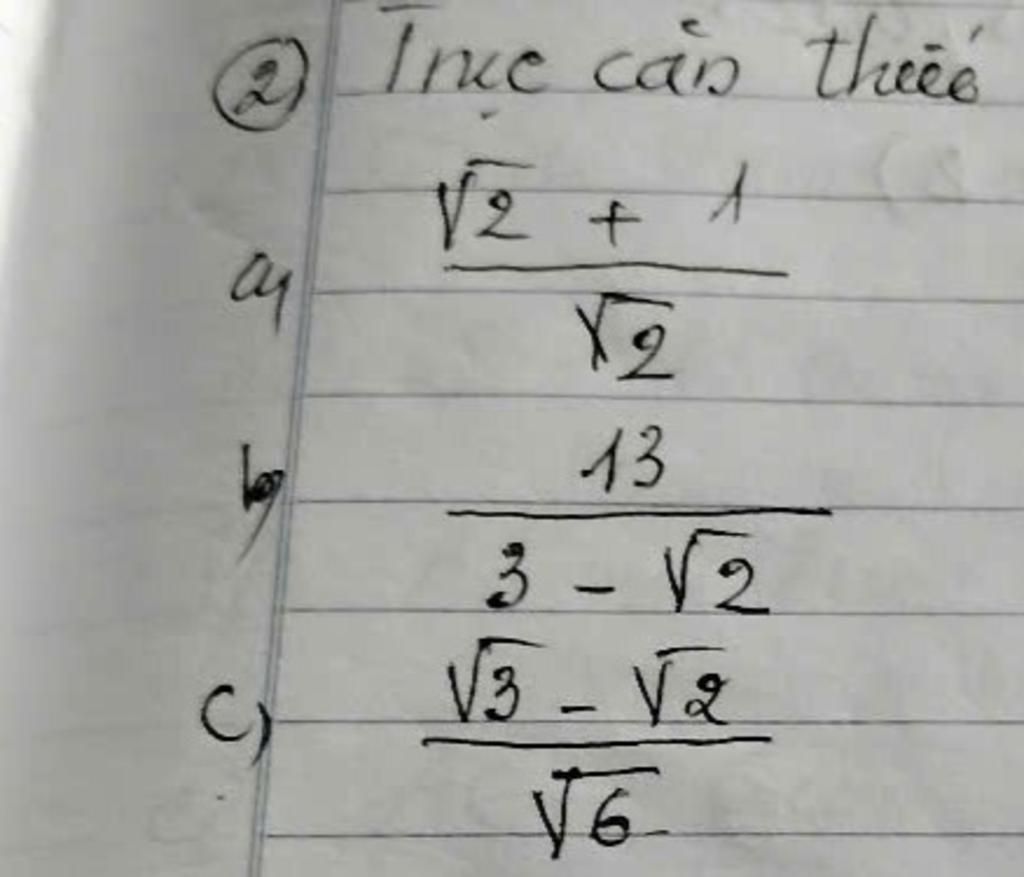 ② Trục căn thức
a) \frac{\sqrt{2} + 1}{\sqrt{2}}
b) \frac{13}{3 - \sqrt{2}}
c) \frac{\sqrt{3} - \sqrt{2}}{\sqrt{6}}